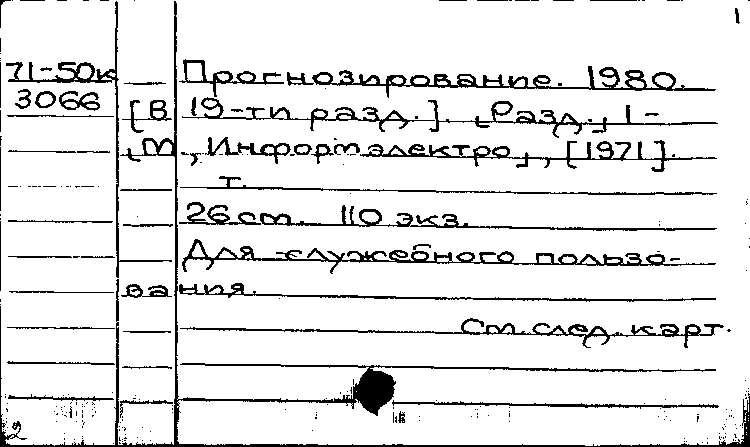 1
71-50к Прогнозирование. 1980.
3066 [В 19-ти разд.]. „Разд.„ 1-
„М., Информэлектро„, [1971].
т.
26 см. 110 экз.
Для служебного пользо-
вания.
См.след.карт.
2